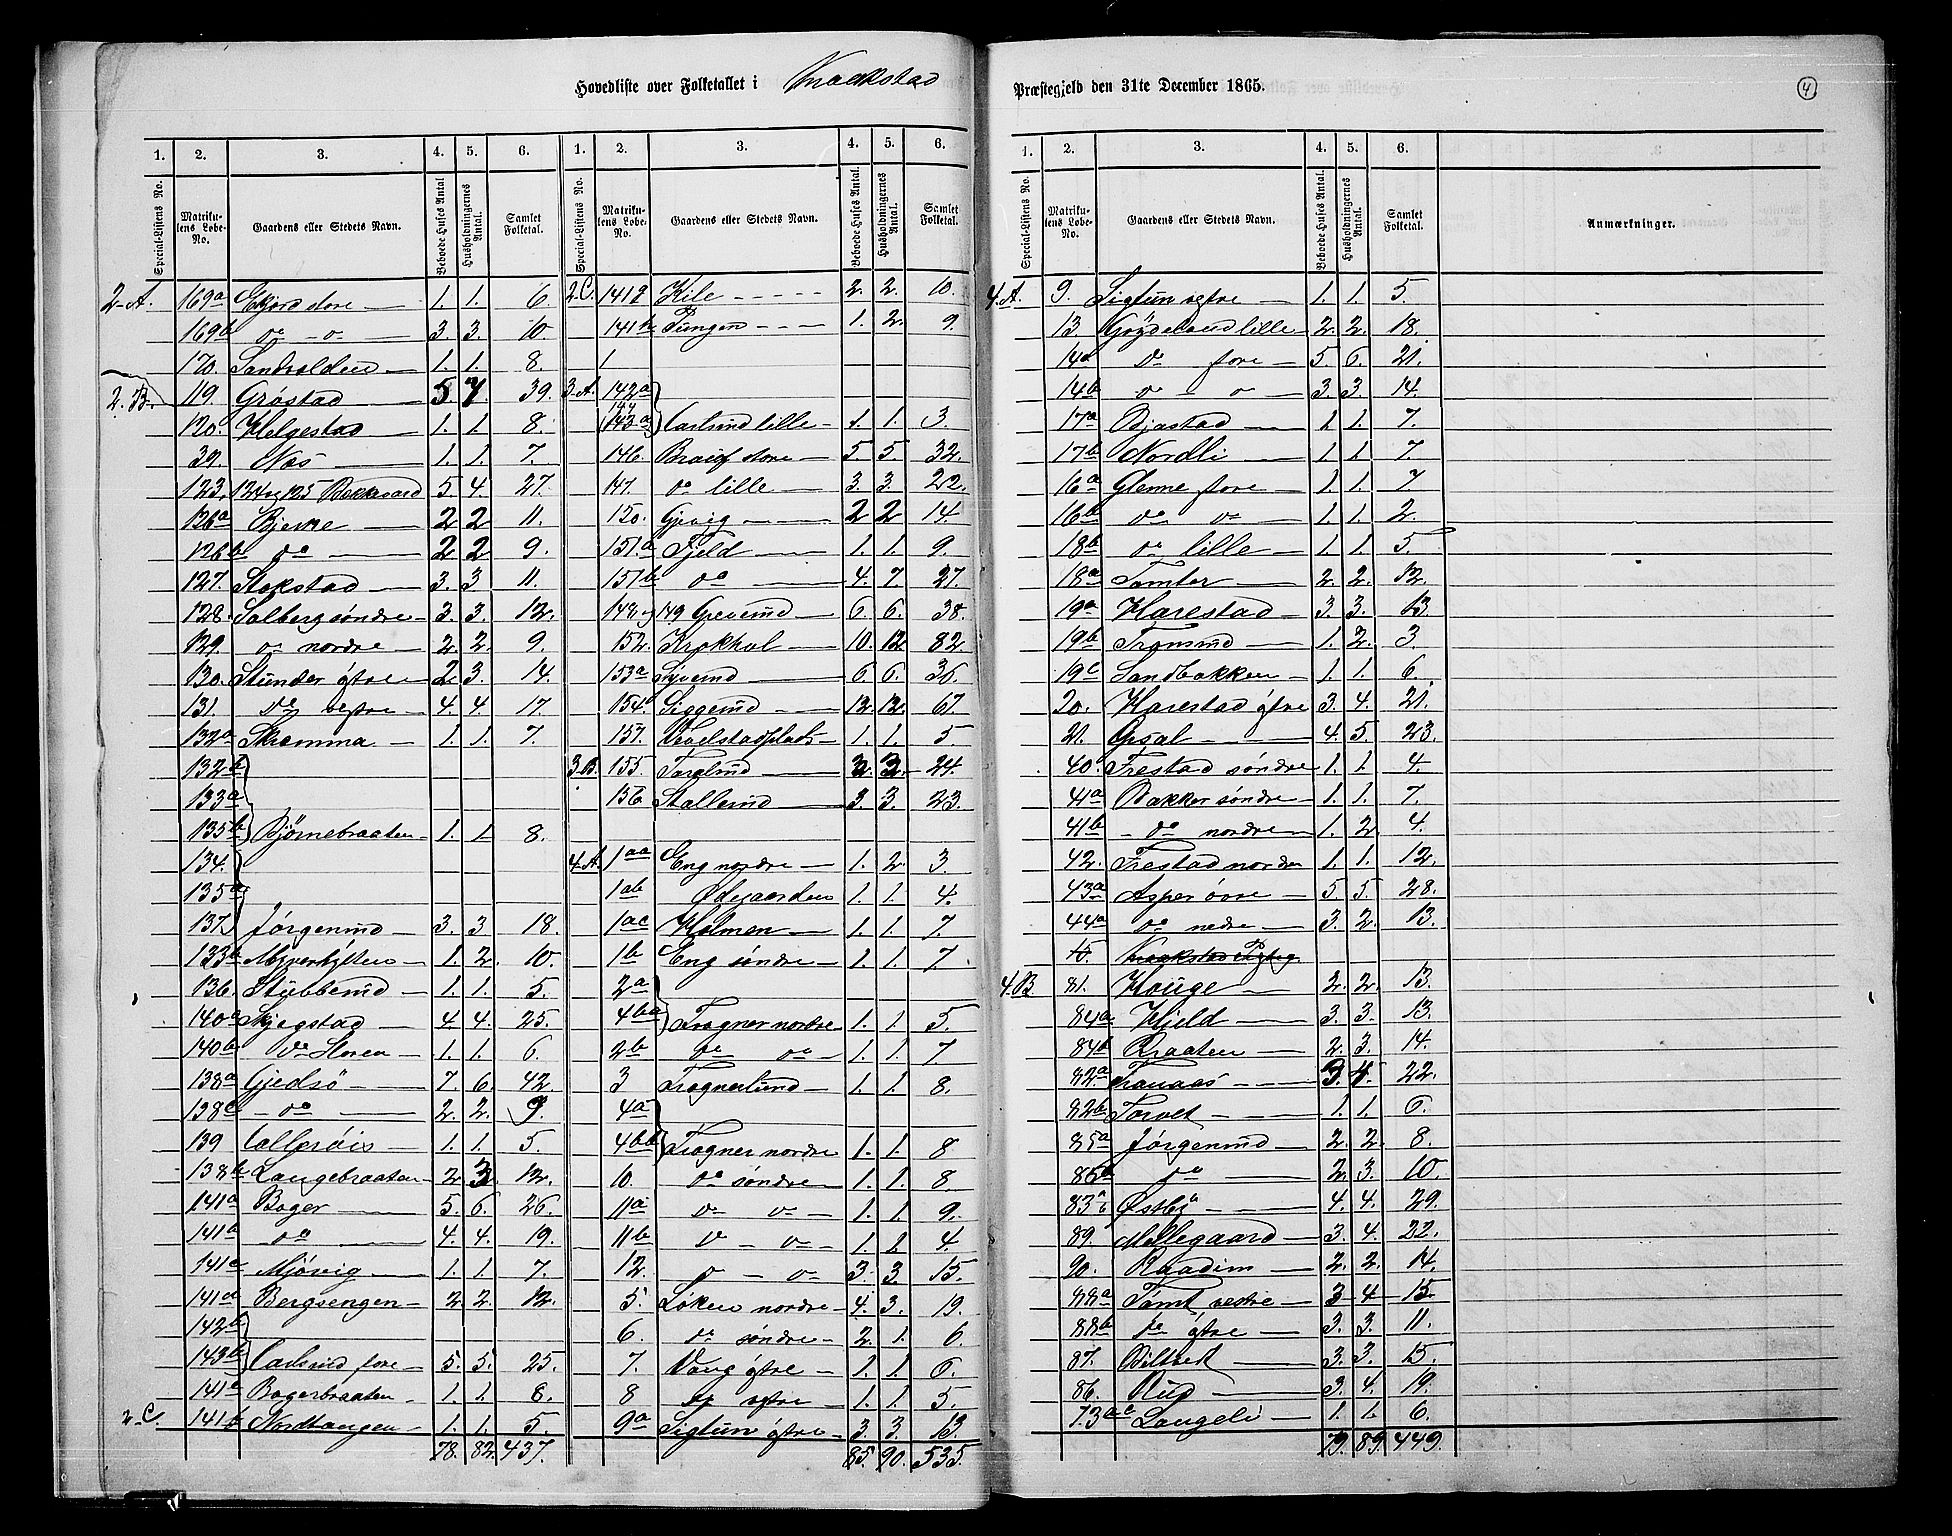 Hovedliste over Folketallet i Kraakstad Præstegjeld den 31te December 1865.
4
1. 2. 3. 4. 5. 6. 1. 2. 3. 4. 5. 6.
Special-Listens No. Matrikulens Løbe-No. Gaardens eller Stedets Navn. Beboede Huses Antal Husholdningernes Antal. Samlet Folketal. Special-Listens No. Matrikulens Løbe-No. Gaardens eller Stedets Navn. Beboede Huses Antal. Husholdningernes Antal. Samlet Folketal.
2-A. 169a Gjord store 1. 1. 6
169b do - o 3. 3. 10.
170. Sandvolden 1. 1. 8.
2. B. 119. Grøstad 5. 7. 39.
120. Helgestad 1. 1. 8.
39. Nøs 1. 1. 7.
123, 124 og 125 Bakkegaard 5. 4. 27.
126a Bjerke 2 2 11.
126b do 2 2 9.
127. Stokstad 3. 3 11.
128. Solberg søndre 3. 3. 12.
129. o nordre 2. 2. 9.
130. Stunder østre 2 3. 14.
131. do vestre 4. 4. 17
132a Skramma 1. 1. 7.
132b
133a
135b Bjørnebraaten 1. 1 8.
134.
135a
137. Jørgenrud 3. 3 18.
133b Myrerhytten 1. 2. 10.
136. Stubberud 1. 1. 5.
140a Skjegstad 4. 4. 25.
140b do Horen 1. 1. 6.
138a Gjedsø 7. 6. 42
138c do 2. 2. 9.
139 Collprøis 1. 1. 5.
138b Langebraaten 2 3 12.
141a Boger 5. 6. 26.
141b do 4. 4. 19.
141c Mjøvig 1. 1. 7.
141d Bergsengen 2 2. 12.
142b
143b Carlsrud store 5. 5. 25.
141e Bogerbraaten 1. 1. 8.
2-C. 141f Nordtangen 1. 1. 5.
78. 82. 437.
2. C. 141g Kile 2. 2. 10.
141h Pungen 1. 2. 9.
1
3-A. 142a
144
143a Carlsrud lille 1. 1. 3.
146. Braud store 5. 5. 32.
147. do lille 3. 3. 22.
150. Gjevig 2 2 14.
151a Fjeld 1. 1. 9.
151b do 4. 7. 27.
148 og 149 Greverud 6. 6. 38.
152. Krokhol 10. 12 82
153a Syverud 6. 6. 36.
154. Siggerud 12. 12. 67.
157. Vevelstadplads 1. 1. 5
3.B. 155. Toglerud 3. 3. 24.
156. Stallerud 3. 3. 23.
4.A. 1aa Eng nordre 1. 2 3.
1ab Ødegaarden 1. 1. 4.
1ac Holmen 1. 1. 7
1b Eng søndre 1. 1. 7.
2a
4ba Frogner nordre 1. 1. 5.
2b do do 1. 1. 7
3 Frognerlund 1. 1. 8.
4a
4bb Frogner nordre 1. 1. 8
10. do søndre 1. 1. 8.
11a do do 1. 1. 9.
11b do - o 1. 1 4.
12. o - o 3. 3. 15.
5. Løken nordre 4. 3. 19.
6. do søndre 2. 1. 6.
7. Vang østre 1. 1. 6.
8 do vestre 1. 1. 5.
9a Sigtun østre 3. 3. 13.
85. 90. 535.
1. 2. 3. 4. 5. 6.
Special-Listens No. Matrikulens Løbe-No. Gaardens eller Stedets Navn. Beboede Huses Antal. Husholdningernes Antal. Samlet Folketal. Anmærkninger.
4. A. 9. Sigtun vestre 1. 1. 5.
13. Gøydelaand lille 2. 2. 18.
14a do store 5. 6. 21.
14b o o 3. 3. 14.
17a Bjastad 1 1. 7.
17b Nordli 1. 1. 7
16a Glenne store 1. 1. 7
16b do o 1. 1. 2.
18b do lille 1. 1. 5.
18a Tomter 2. 2. 12.
19a Harestad 3. 3. 13.
19b Tromrud 1. 2. 3.
19c Sandbakken 1. 1. 6.
20. Harestad østre 3. 4. 21.
21. Opsal 4. 5. 23.
40. Frestad søndre 1. 1. 4.
41a Bakker søndre 1. 1. 7.
41b do nordre 1. 2. 4.
42. Frestad nordre 1. 1. 12.
43a Asper øvre 5. 5. 28.
44a do nedre 3. 2. 13.
15. Kraakstad Prstg.
4. B. 81. Houge 2. 2. 13.
84a Hjeld 3. 3. 13.
84b Braaten 2. 3. 14.
82a Tranaas 3. 4. 22.
82b Torvet 1. 1. 6.
85a Jørgenrud 2. 2. 8.
85b do 2. 3. 10.
83a b Østby 4. 4. 29.
89. Mellegaard 3. 4. 22.
90. Raadim 2. 2. 14.
88a Tomt vestre 3 4 15.
88b do østre 3. 3. 11.
87. Biltvet 3. 3. 15.
86. Rud 3. 4. 19.
73ac Langeli 1. 1. 6.
79. 89. 449.